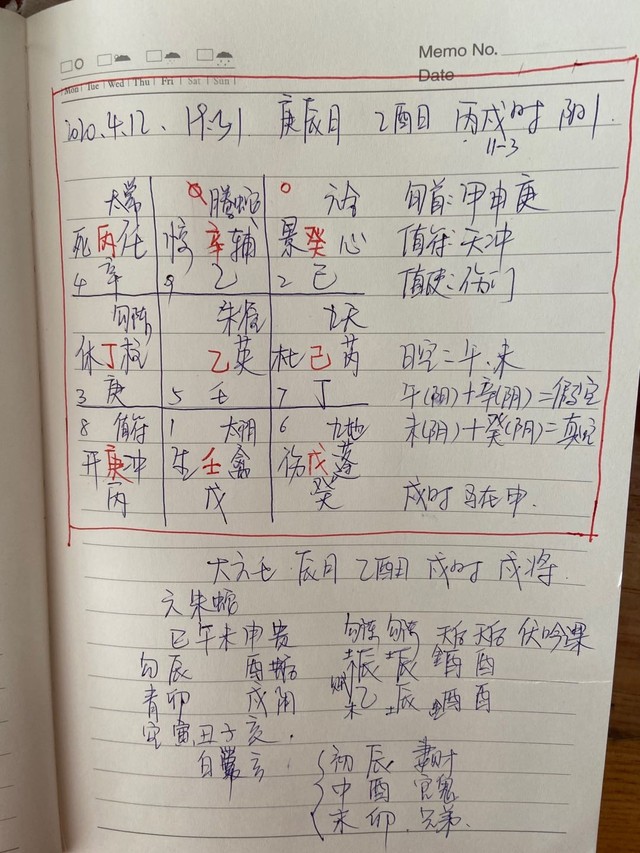 Memo No.
Date
Mon Tue Wed Thu Fri Sat Sun
2020.4.12. 19:31 庚辰月 乙酉日 丙戌时 阴1
11-3
太常 螣蛇 六合 旬首:甲申庚
死丙任 惊辛辅 景癸心 值符:天冲
4 辛 9 乙 2 己 值使:伤门
勾陈 朱雀 九天
休丁柱 乙英 杜己芮 日空=午.未
3 庚 5 壬 7 丁 午(阴)+辛(阴)=假空
8 值符 1 太阴 6 九地 未(阴)+癸(阴)=真空
开庚冲 生壬禽 伤戊蓬
丙 戊 癸 戌时 马在申.
大六壬 辰月 乙酉日 戌时 戌将.
六朱蛇
巳午未申贵 勾陈 勾陈 天后 天后 伏吟课
勾辰 酉 土辰 土辰 金酉 酉
青卯 戌阴 木乙 土辰 金酉 酉
空寅丑子亥.
白常玄
初 辰 妻财
中 酉 官鬼
末 卯.兄弟.